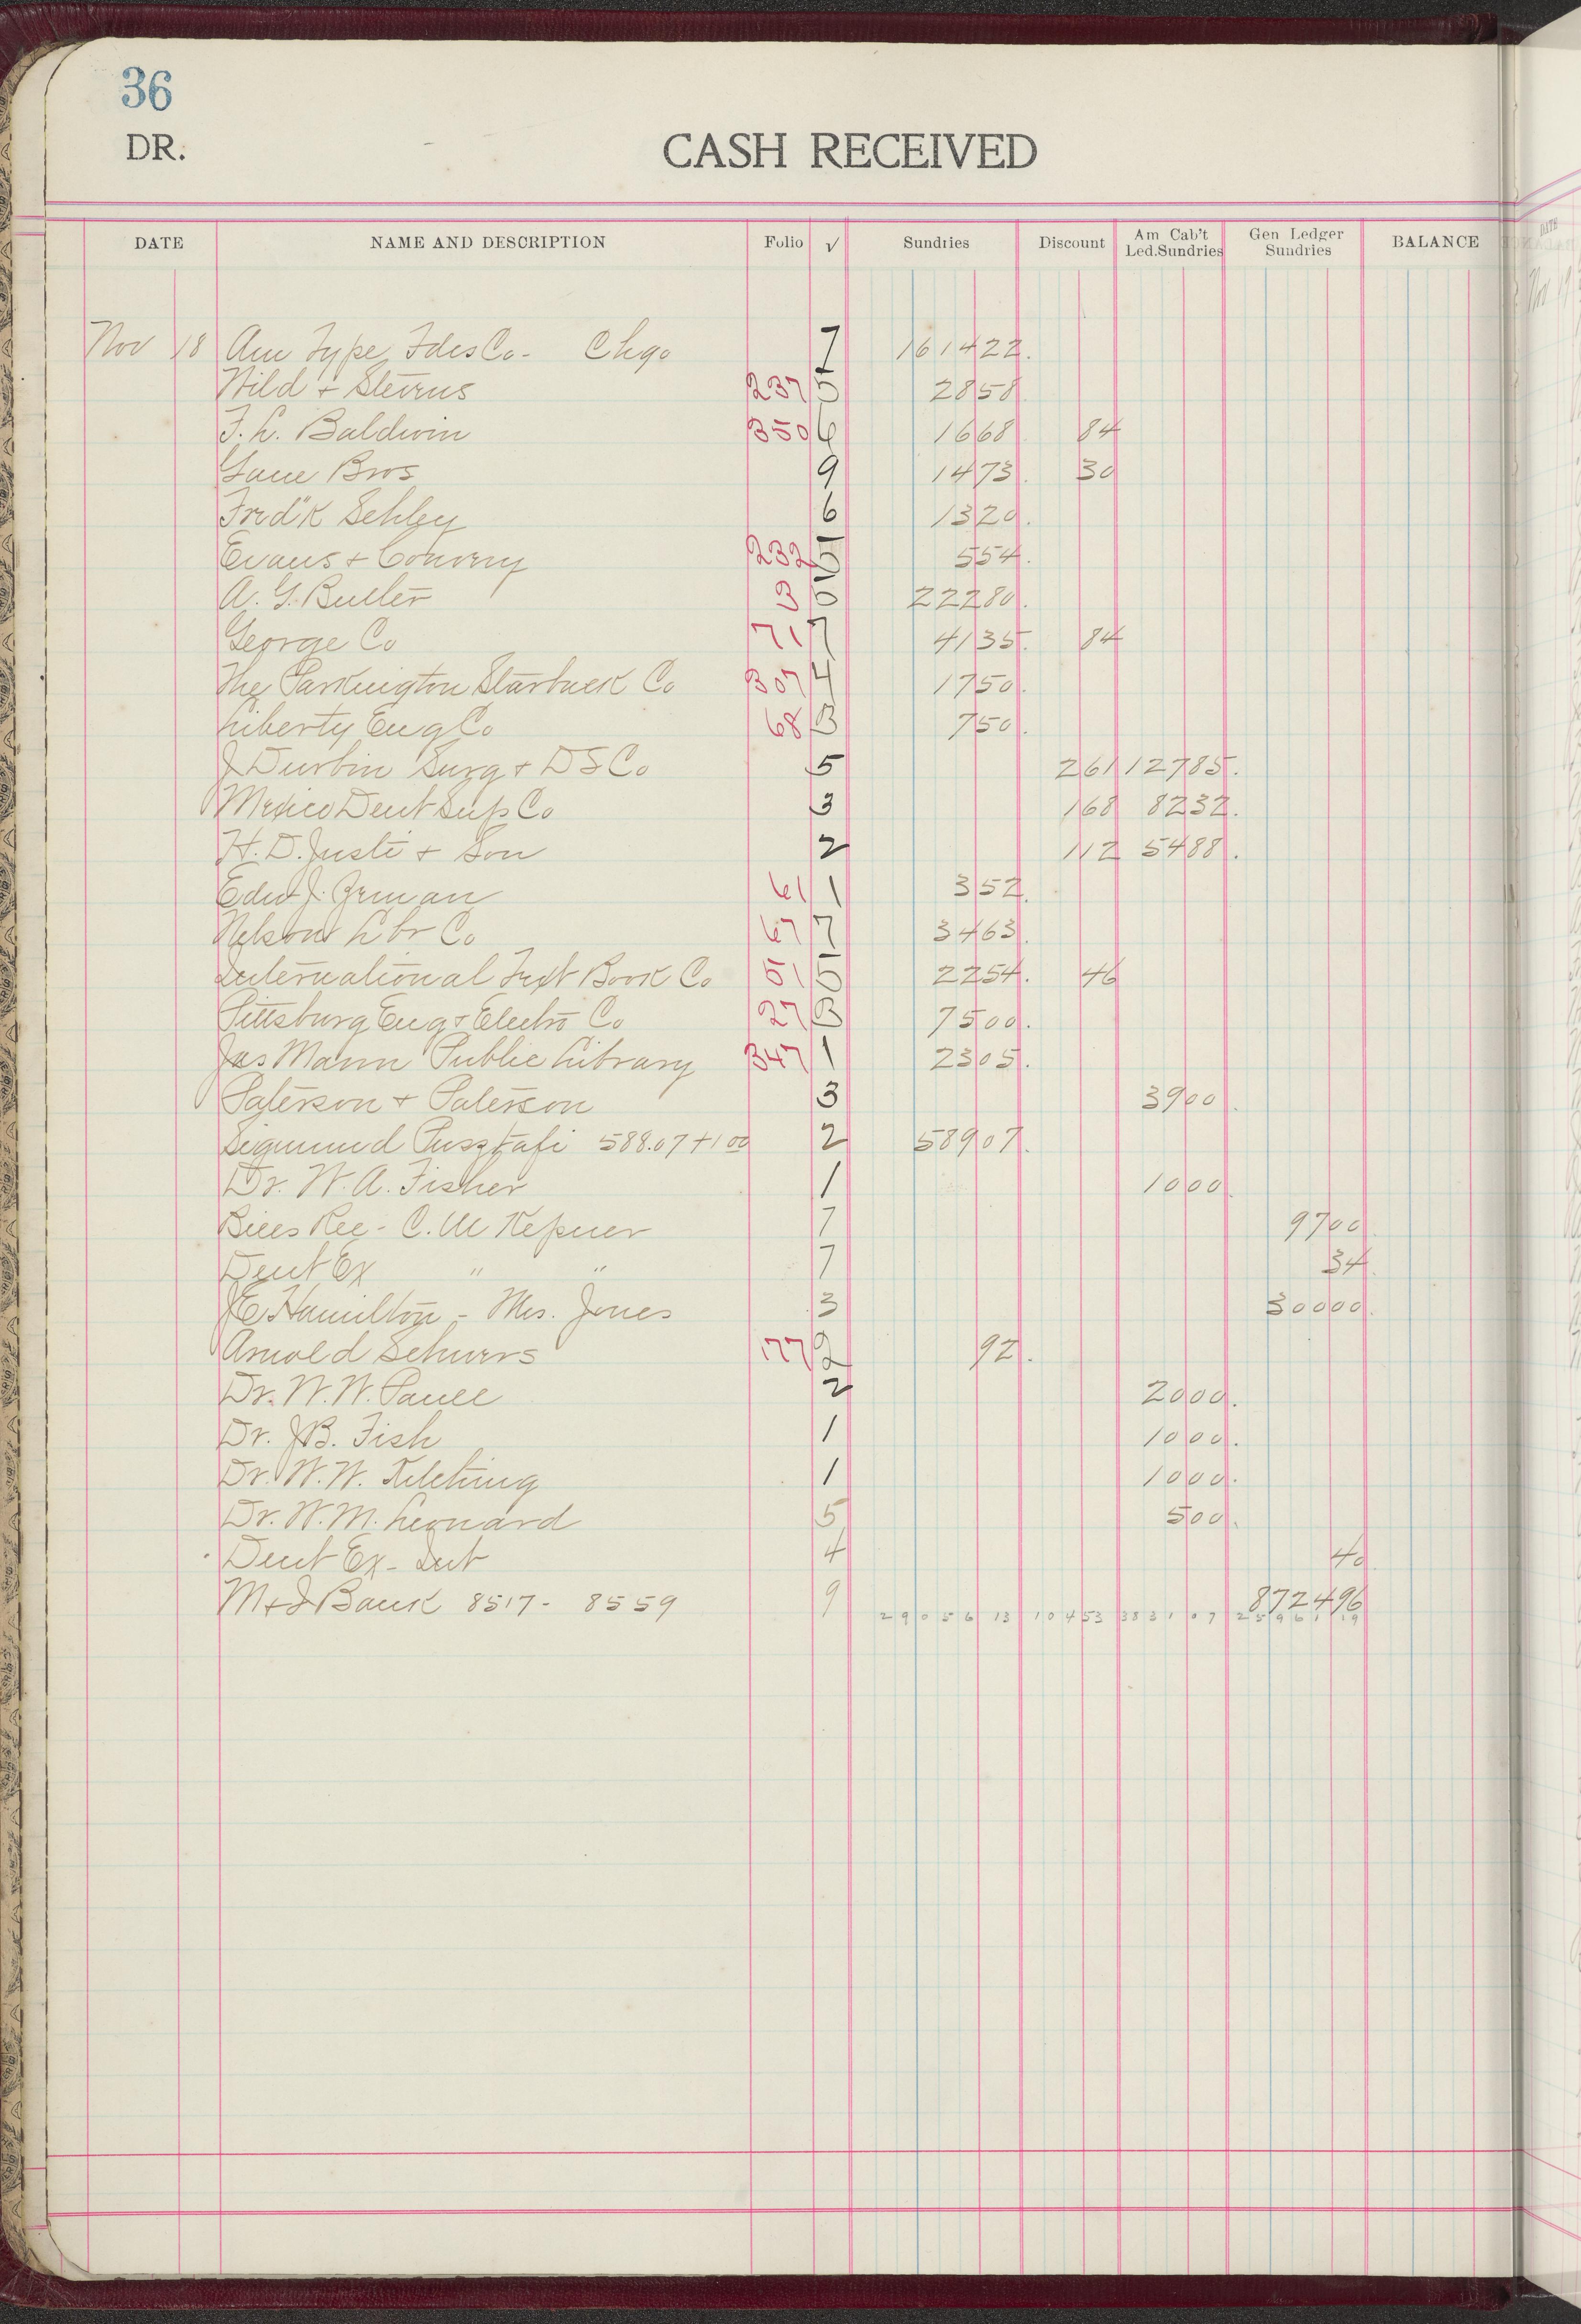 36
DR.
CASH RECEIVED
DATE NAME AND DESCRIPTION Folio √ Sundries Discount Am Cab't Led.Sundries Gen Ledger Sundries BALANCE
Nov 18 Am Type Fdrs Co - Chgo 7 1614 22
Wild + Stevens 237 5 28 58
F. L. Baldwin 350 6 16 68 84
Gane Bros 9 14 73 30
Fred'k Schley 6 13 20
Evans + Convery 232 5 5 54
A. G. Butler 3 5 222 80
George Co 71 7 41 35 84
The Parkington Starbuck Co 307 4 17 50
Liberty Eng Co 68 3 7 50
J Durbin Surg + D S Co 5 2 61 127 85
Mexico Dent Sup Co 3 1 68 82 32
H. D. Justi + Son 2 1 12 54 88
Edw J. 61 1 3 52
Nelson Co 67 7 34 63
International Text Book Co 51 5 22 54 46
Pittsburg Eng + Electro Co 27 3 75 00
Jas Mann Public Library 347 1 23 05
Paterson + Paterson 3 39 00
Sigmund Pusztafi 588.07 + 1 00 2 589 07
Dr. W. A. Fisher 1 10 00
Bills Rec - C. M Kepner 7 97 00
Dent Ex " " 7 34
Hamilton - Mrs. Jones 3 300 00
Arnold Schwers 177 2 92
Dr. W. W. 2 20 00
Dr. J B. Fish 1 10 00
Dr. W. W. 1 10 00
Dr. W. M. Leonard 5 5 00
Dent Ex - Int 4 40
M + J Bank 8517 - 8559 9 8724 96
29056 13 104 53 3831 07 25961 19